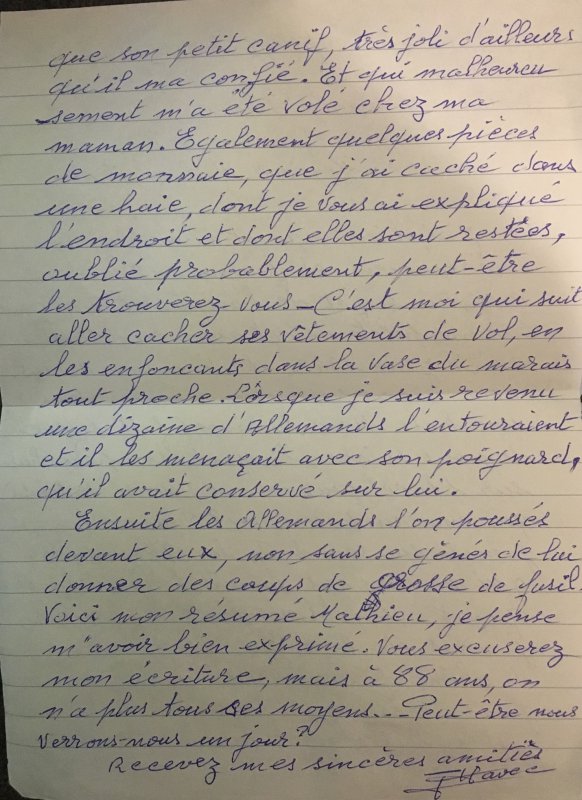 que son petit canif, très joli d'ailleurs
qu'il ma confié. Et qui malheureu
sement m'a été volé chez ma
maman. Egalement quelques pièces
de monnaie, que j'ai caché dans
une haie, dont je vous ai expliqué
l'endroit et dont elles sont restées,
oublié probablement, peut-être
les trouverez-vous_C'est moi qui suit
aller cacher ses vêtements de vol, en
les enfoncants dans la vase du marais
tout proche. Lôrsque je suis revenu
une dizaine d'Allemands l'entouraient
et il les menaçait avec son poignard,
qu'il avait conservé sur lui.
Ensuite les Allemands l'on poussés
devant eux, non sans se gênés de lui
donner des coups de crosse de fusil.
Voici mon résumé Mathieu, je pense
m'avoir bien exprimé. Vous excuserez
mon écriture, mais à 88 ans, on
n'a plus tous ses moyens... Peut-être nous
verrons-nous un jour?
Recevez mes sincères amitiés